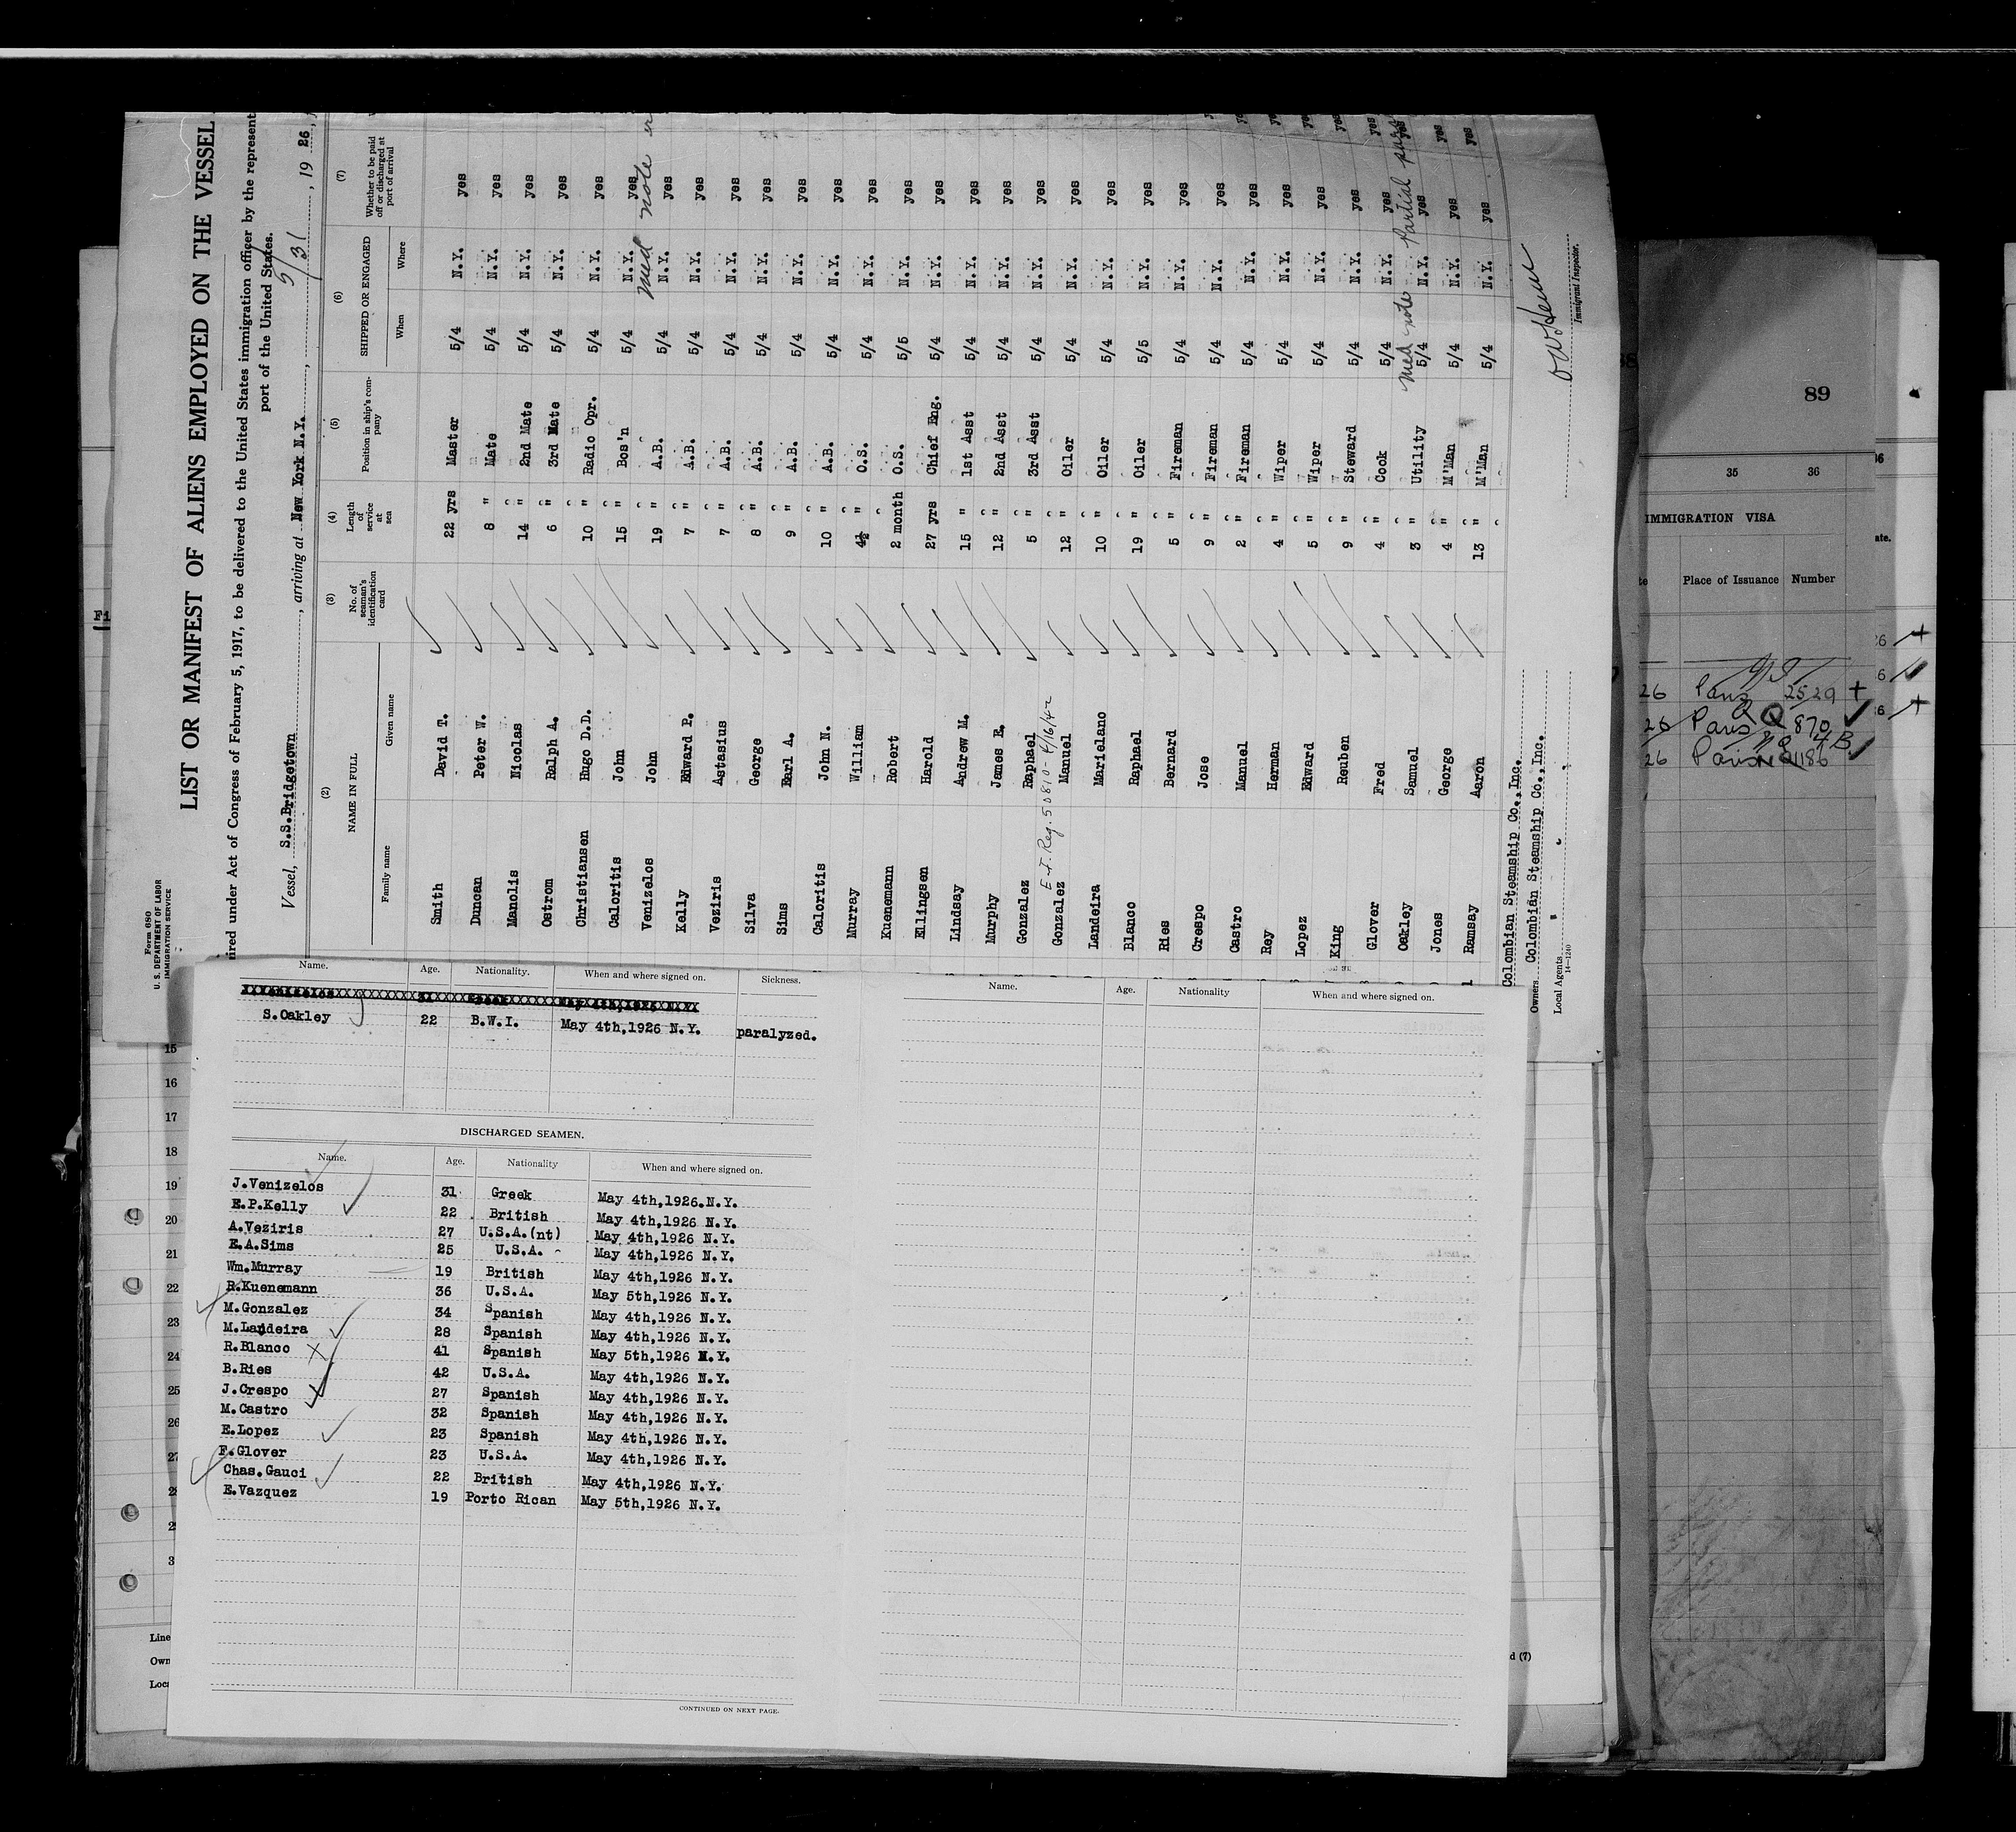 Form 680
U. S. DEPARTMENT OF LABOR
IMMIGRATION SERVICE
LIST OR MANIFEST OF ALIENS EMPLOYED ON THE VESSEL
ired under Act of Congress of February 5, 1917, to be delivered to the United States immigration officer by the represent
port of the United States.
Vessel, S.S.Bridgetown, arriving at New York N.Y., 5/31, 19 26,
(2) (3) (4) (5) (6) (7)
NAME IN FULL No. of seaman's identification card Length of service at sea Position in ship's company SHIPPED OR ENGAGED Whether to be paid off or discharged at port of arrival
Family name Given name When Where
Smith David T. 22 yrs Master 5/4 N.Y. yes
Duncan Peter W. 8 " Mate 5/4 N.Y. yes
Manolis Nicolas 14 " 2nd Mate 5/4 N.Y. yes
Ostrom Ralph A. 6 " 3rd Mate 5/4 N.Y. yes
Christiansen Hugo D.D. 10 " Radio Opr. 5/4 N.Y. yes
Caloritis John 15 " Bos'n 5/4 N.Y. yes
med note
Venizelos John 19 " A.B. 5/4 N.Y. yes
Kelly Edward P. 7 " A.B. 5/4 N.Y. yes
Veziris Astasius 7 " A.B. 5/4 N.Y. yes
Silva George 8 " A.B. 5/4 N.Y. yes
Sims Earl A. 9 " A.B. 5/4 N.Y. yes
Caloritis John N. 10 " A.B. 5/4 N.Y. yes
Murray William 4½ " O.S. 5/4 N.Y. yes
Kuenemann Robert 2 month O.S. 5/5 N.Y. yes
Ellingsen Harold 27 yrs Chief Eng. 5/4 N.Y. yes
Lindsay Andrew M. 15 " 1st Asst 5/4 N.Y. yes
Murphy James E. 12 " 2nd Asst 5/4 N.Y. yes
Gonzalez Raphael 5 " 3rd Asst 5/4 N.Y. yes
E.F. Reg. 50810 - 4/16/42
Gonzalez Manuel 12 " Oiler 5/4 N.Y. yes
Landeira Marielano 10 " Oiler 5/4 N.Y. yes
Blanco Raphael 19 " Oiler 5/5 N.Y. yes
Ries Bernard 5 " Fireman 5/4 N.Y. yes
Crespo Jose 9 " Fireman 5/4 N.Y. yes
Castro Manuel 2 " Fireman 5/4 N.Y. yes
Rey Herman 4 " Wiper 5/4 N.Y. yes
Lopez Edward 5 " Wiper 5/4 N.Y. yes
King Reuben 9 " Steward 5/4 N.Y. yes
Glover Fred 4 " Cook 5/4 N.Y. yes
med note Partial
Oakley Samuel 3 " Utility 5/4 N.Y. yes
Jones George 4 " M'Man 5/4 N.Y. yes
Ramsay Aaron 13 " M'Man 5/4 N.Y. yes
Colombian Steamship Co., Inc.
Owners Colombian Steamship Co., Inc.
Local Agents " "
14-1240
Immigrant Inspector.
Name. Age. Nationality. When and where signed on. Sickness.
S.Oakley 22 B.W.I. May 4th,1926 N.Y. paralyzed.
DISCHARGED SEAMEN.
Name. Age. Nationality When and where signed on.
J.Venizelos 31 Greek May 4th,1926.N.Y.
E.P.Kelly 22 British May 4th,1926 N.Y.
A.Veziris 27 U.S.A.(nt) May 4th,1926 N.Y.
E.A.Sims 25 U.S.A. May 4th,1926 N.Y.
Wm.Murray 19 British May 4th,1926 N.Y.
R.Kuenemann 36 U.S.A. May 5th,1926 N.Y.
M.Gonzalez 34 Spanish May 4th,1926 N.Y.
M.Landeira 28 Spanish May 4th,1926 N.Y.
R.Blanco 41 Spanish May 5th,1926 N.Y.
B.Ries 42 U.S.A. May 4th,1926 N.Y.
J.Crespo 27 Spanish May 4th,1926 N.Y.
M.Castro 32 Spanish May 4th,1926 N.Y.
E.Lopez 23 Spanish May 4th,1926 N.Y.
F.Glover 23 U.S.A. May 4th,1926 N.Y.
Chas.Gauci 22 British May 4th,1926 N.Y.
E.Vazquez 19 Porto Rican May 5th,1926 N.Y.
CONTINUED ON NEXT PAGE.
Name. Age. Nationality When and where signed on.
15
16
17
18
19
20
21
22
23
24
25
26
27
28
Line
Own
Loca
d (7)
89
35 36
IMMIGRATION VISA
Place of Issuance Number
26 Paris 2529
26 Paris 870
26 Paris 1186
ate.